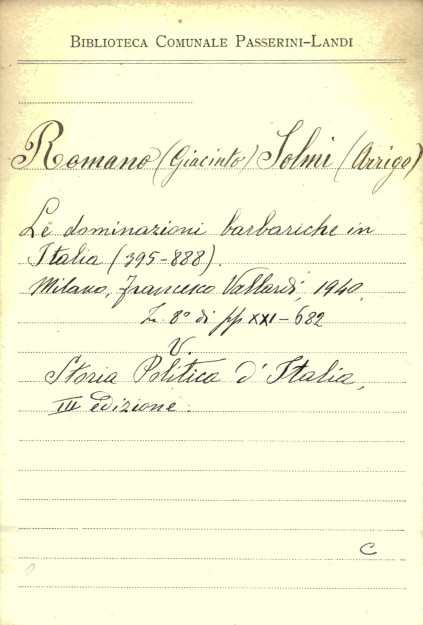 BIBLIOTECA COMUNALE PASSERINI-LANDI
Romano (Giacinto) Solmi (Arrigo)
Le dominazioni barbariche in
Italia (395-888).
Milano, Francesco Vallardi, 1940,
in 8° di pp XXI-682
V.
Storia Politica d'Italia,
III edizione.
C